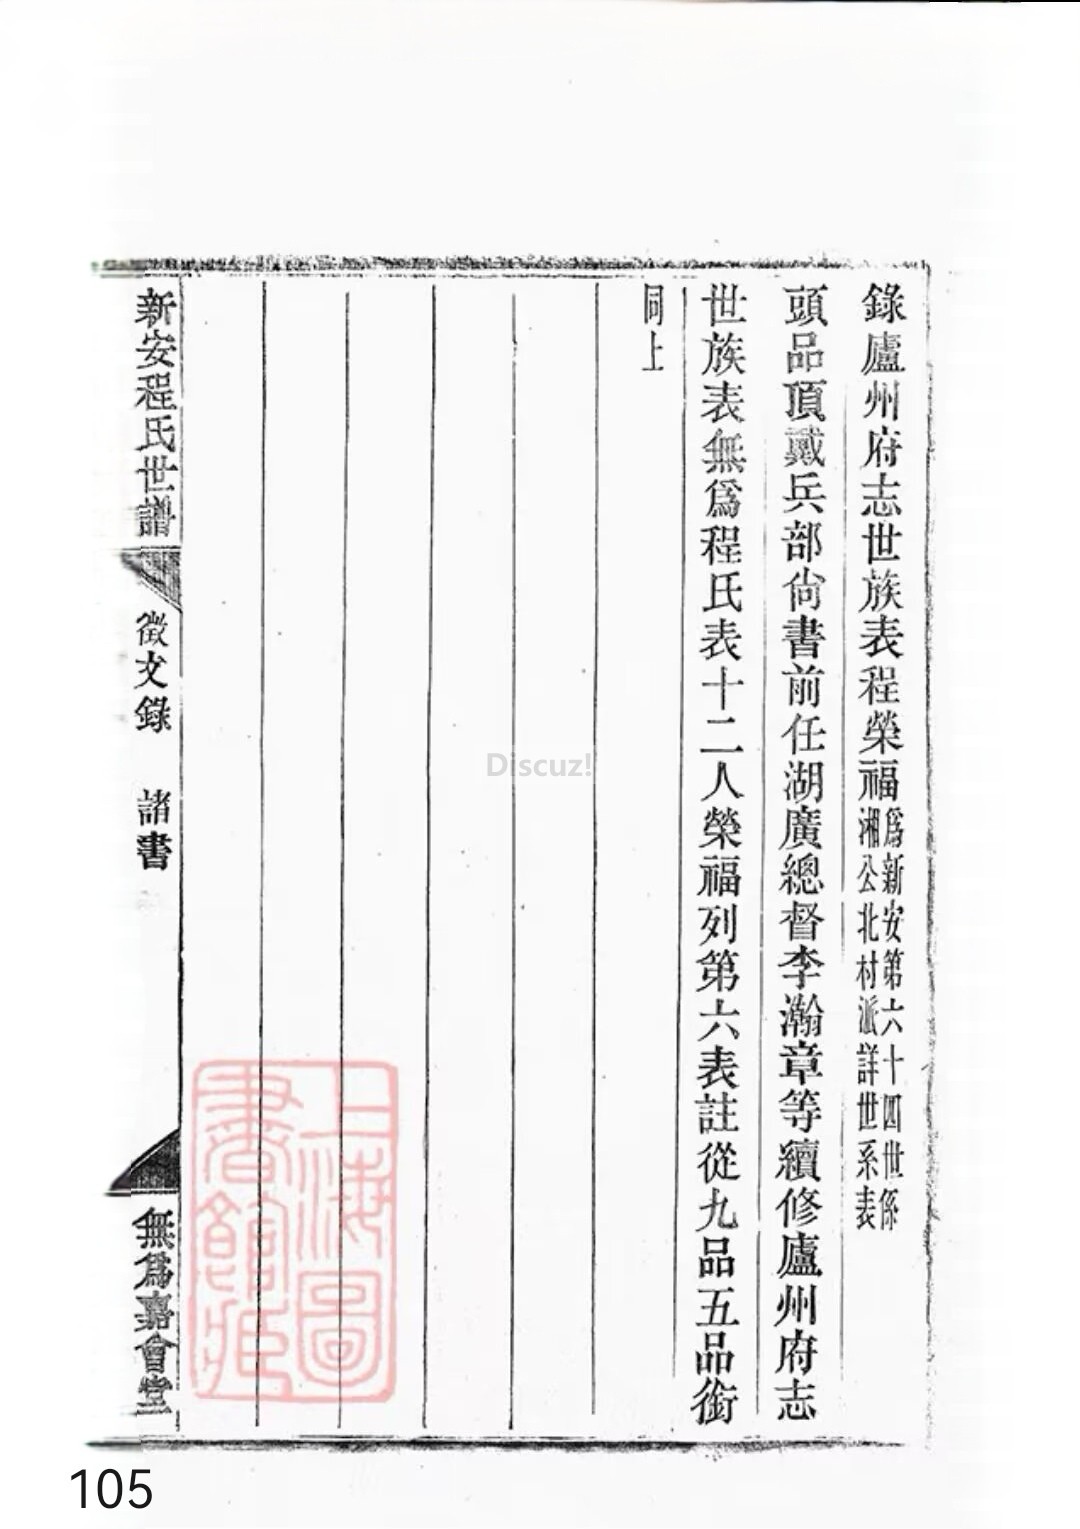 錄廬州府志世族表程榮福爲新安第六十四世係
湘公北村派詳世系表
頭品頂戴兵部尙書前任湖廣總督李瀚章等續修廬州府志
世族表無爲程氏表十二人榮福列第六表註從九品五品銜
同上
新安程氏世譜 徵文錄 諸書 無爲嘉會堂
上海圖
書館藏
Discuz!
105